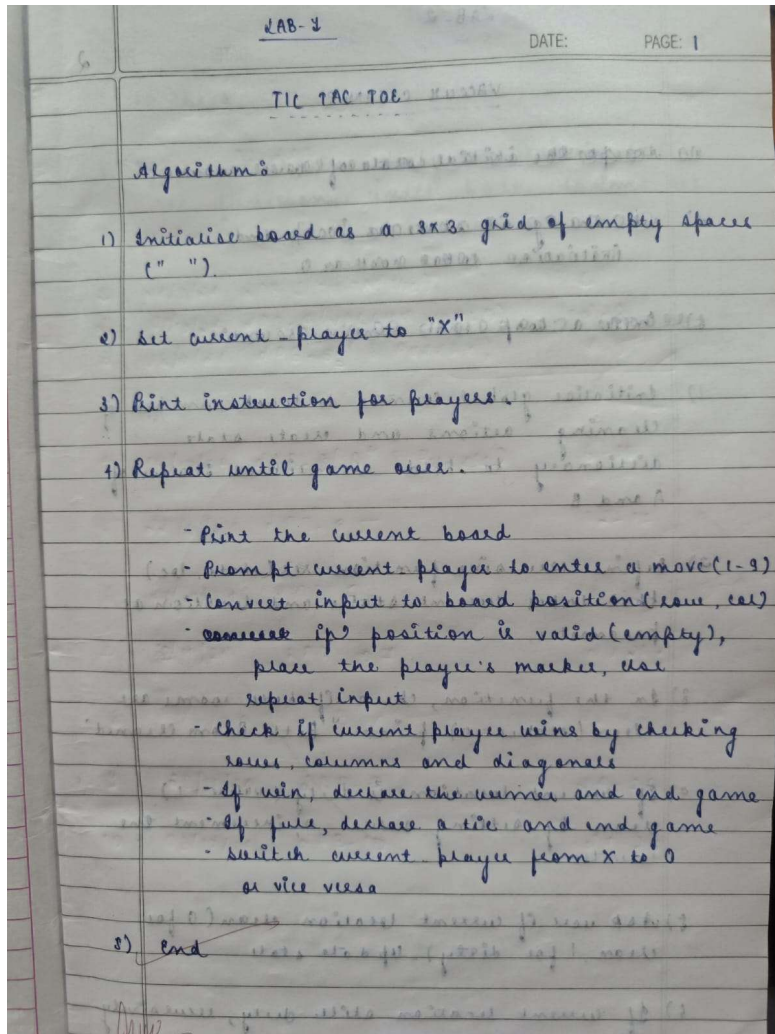 LAB-1
DATE: PAGE: 1
TIC TAC TOE
Algorithm:
1) Initialise board as a 3x3 grid of empty spaces
(" ").
2) Set current_player to "X"
3) Print instruction for players.
4) Repeat until game over.
- Print the current board
- Prompt current player to enter a move (1-9)
- Convert input to board position (row, col)
- if position is valid (empty),
place the player's marker, else
repeat input
- Check if current player wins by checking
rows, columns and diagonals
- If win, declare the winner and end game
- If full, declare a tie and end game
- Switch current player from X to O
or vice versa
5) End